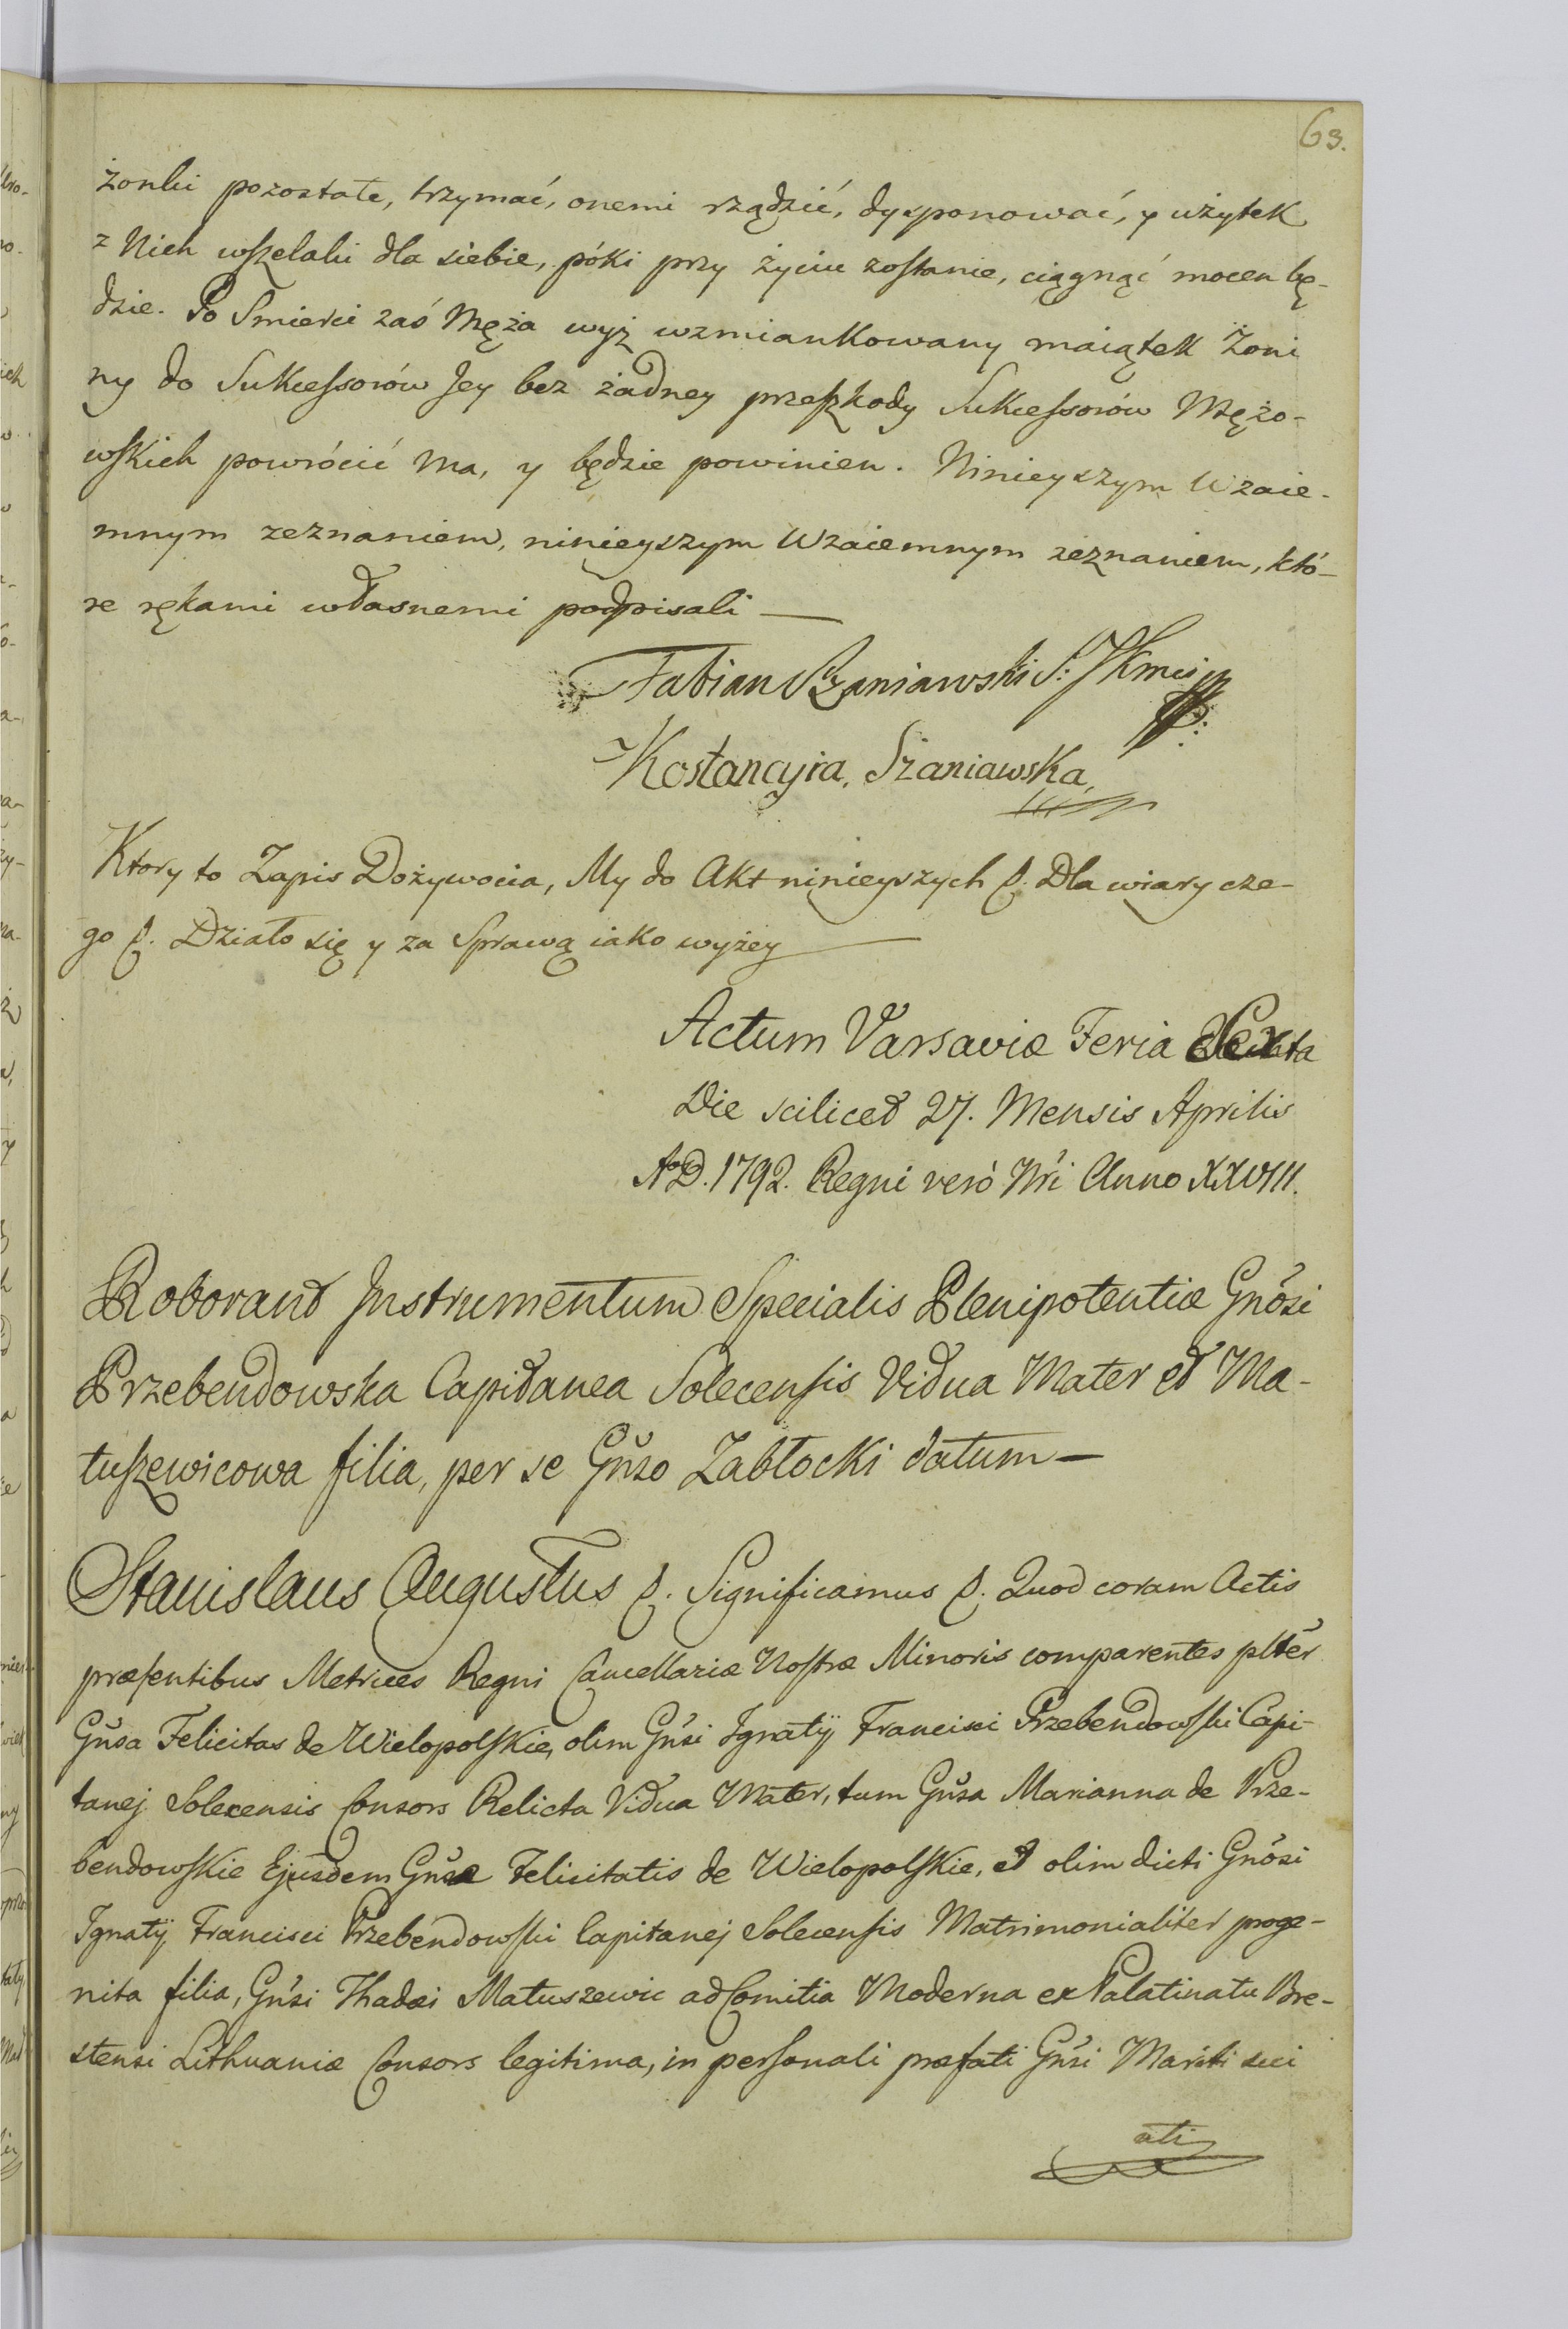 63.
żonki pozostałe, trzymać, onemi rządzić, dysponować, y użytek
z Nich wszelaki dla siebie, póki przy życiu zostanie, ciągnąć mocen bę-
dzie. Po Smierci zaś Męża wyż wzmiankowany maiątek Żoni
ny do Sukcessorów Jey bez żadney przeszkody Sukcessorów Mężo-
wskich powrócić ma, y będzie powinien. Ninieyszym Wzaie-
mnym zeznaniem, ninieyszym Wzaiemnym zeznaniem, któ-
re rękami własnemi podpisali —
Fabian Szaniawski S: JKmci
Kostancyia, Szaniawska,
Ktory to Zapis Dożywocia, My do Akt ninieyszych &. Dla wiary cze-
go &. Działo się y za Sprawą iako wyżey
Actum Varsaviæ Feria Sexta
Die scilicet 27. Mensis Aprilis
A.D. 1792. Regni veró Nri Anno XXVIII.
Roborant Instrumentum Specialis Plenipotentiæ Gnosi
Przebendowska Capitanea Solecensis Vidua Mater et Ma-
tuszewicowa filia, per se Gnso Zabłocki datum —
Stanislaus Augustus &. Significamus &. Quod coram Actis
præsentibus Metrices Regni Cancellariæ Nostræ Minoris comparentes plter
Gnsa Felicitas de Wielopolskie, olim Gnsi Ignatij Francisci Przebendowski Capi-
tanej Solecensis Consors Relicta Vidua Mater, tum Gnsa Marianna de Prze-
bendowskie Ejusdem Gnsæ Felicitatis de Wielopolskie, et olim dicti Gnosi
Ignatij Francisci Przebendowski Capitanej Solecensis Matrimonialiter proge-
nita filia, Gnsi Thadæi Matuszewic ad Comitia Moderna ex Palatinatu Bre-
stensi Lithuaniæ Consors legitima, in personali præfati Gnsi Mariti sui
ati